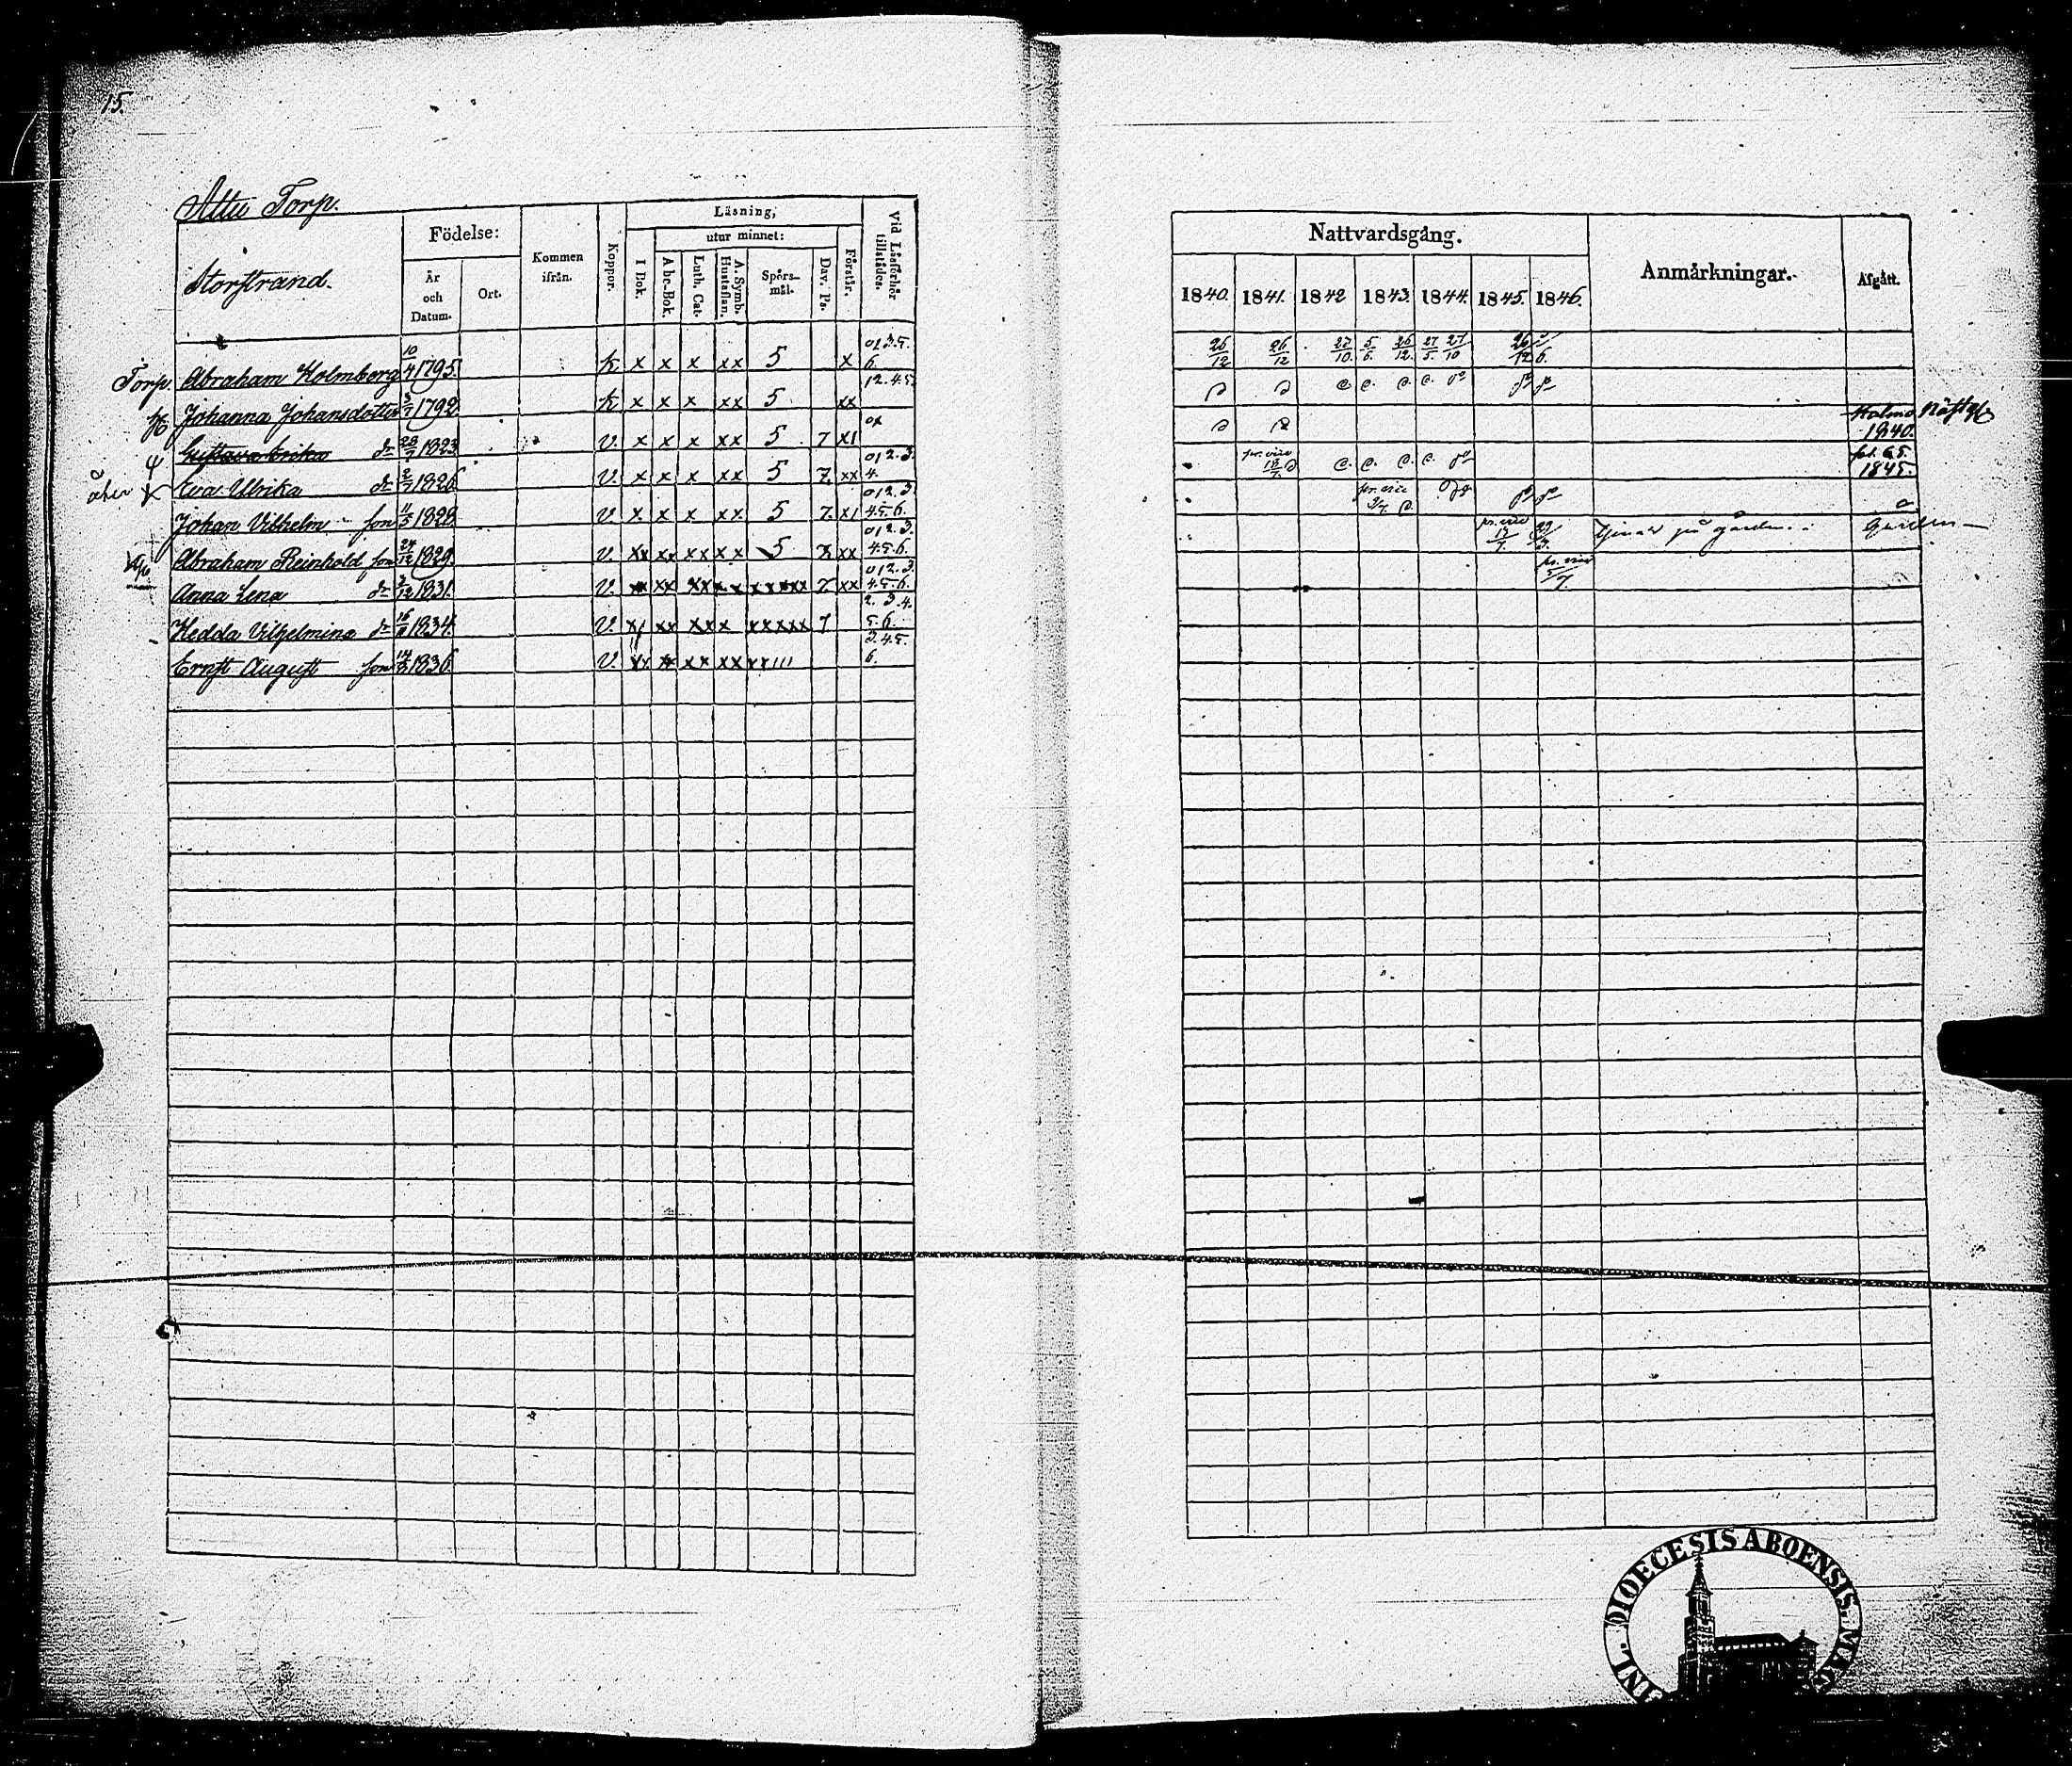 15.
Attu Torp.
Storstrand.
Födelse:
År och Datum.
Ort.
Kommen ifrån.
Koppor.
Läsning,
I Bok.
utur minnet:
A bc-Bok.
Luth. Cat.
A. Symb. Hustaflan.
Spörs-mål.
Dav. Ps.
Förstår.
Vid Läsförhör tillstädes.
Torp. Abraham Holmberg 10/4 1795. k x x x xx 5 x 01.3.5. 6.
H Johanna Johansdotter 3/7 1792 k x x x xx 5 xx 12.4.5.
Gustava Erika dr 1823 v. x x x xx 5 7 x1
Eva Ulrika dr 1826 v. x x x xx 5 7. xx 012.3. 4.
Johan Vilhelm son 11/5 1828 v. x x x xx 5 7. x1 012.3. 4.5.6.
Abraham Reinhold son 24/12 1829. v. xx xx xx xx 5 7 xx 012.3. 4.5.6.
Anna Lena dr 3/12 1831. v. xx xx 7. xx 012.3. 4.5.6.
Hedda Vilhelmina dr 1834. v. xx xxx xxxxx 7 2.3.4. 5.6
Ernst August son 1836. v. xx xx xx xx xx/// 3.4.5. 6.
Nattvardsgång.
Anmärkningar.
Afgått.
1840. 1841. 1842 1843. 1844. 1845. 1846.
26/12 26/12 27/10 5/6 26/12 27/5 27/10 26/12
Holma
1840.
1845.
pr. vice
pr. vice
pr. vice
tjenar på gården.
Gården
pr. vice 5/7.
FINL. DIOECESIS ABOENSIS. MAG